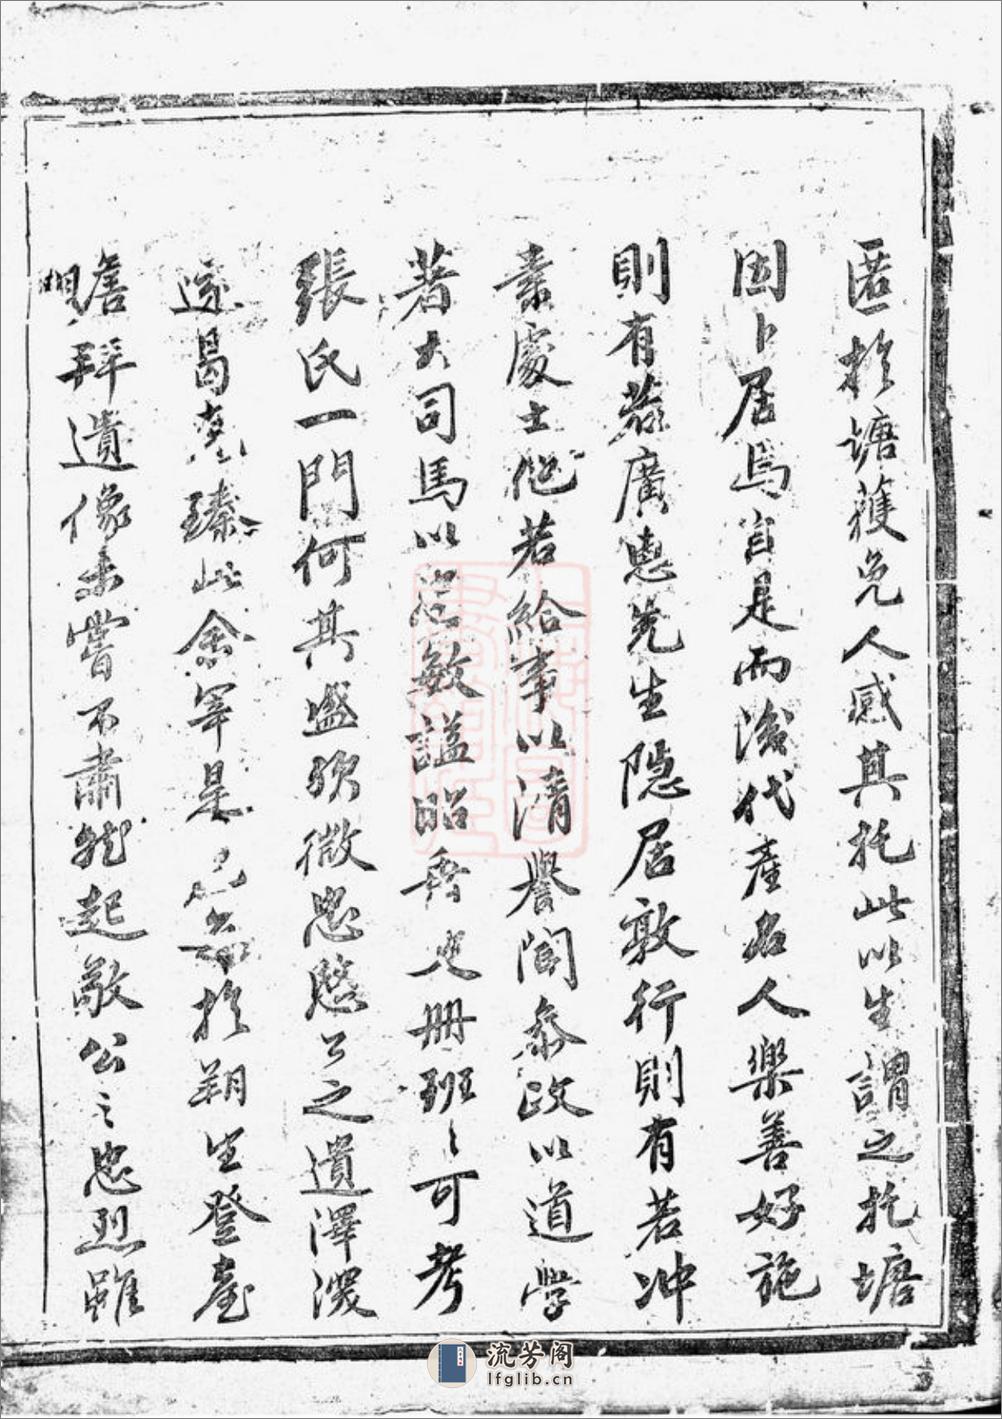 匿於塘獲免人感其托此以生謂之托塘
因卜居焉自是而後代產名人樂善好施
則有若廣惠先生隱居敦行則有若冲
素處士他若給事以清譽聞叅政以道學
著大司馬以忠敏謚昭垂史册班〻可考
張氏一門何其盛歟微忠愍公之遺澤深
遠曷克臻此余宰是邑每於朔望登臺
瞻拜遺像未嘗不肅然起敬公之忠烈雖
流芳阁
lfglib.cn